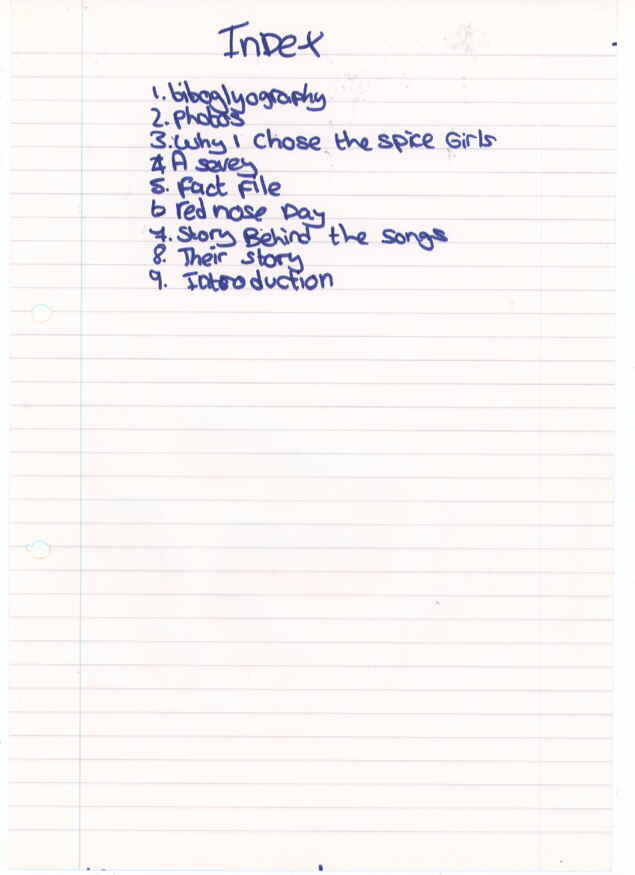 Index
1. biboglyography
2. photos
3. Why I Chose the spice Girls
4 A servey
5. fact File
6 red nose Day
7. Story Behind the songs
8. Their story
9. Introduction